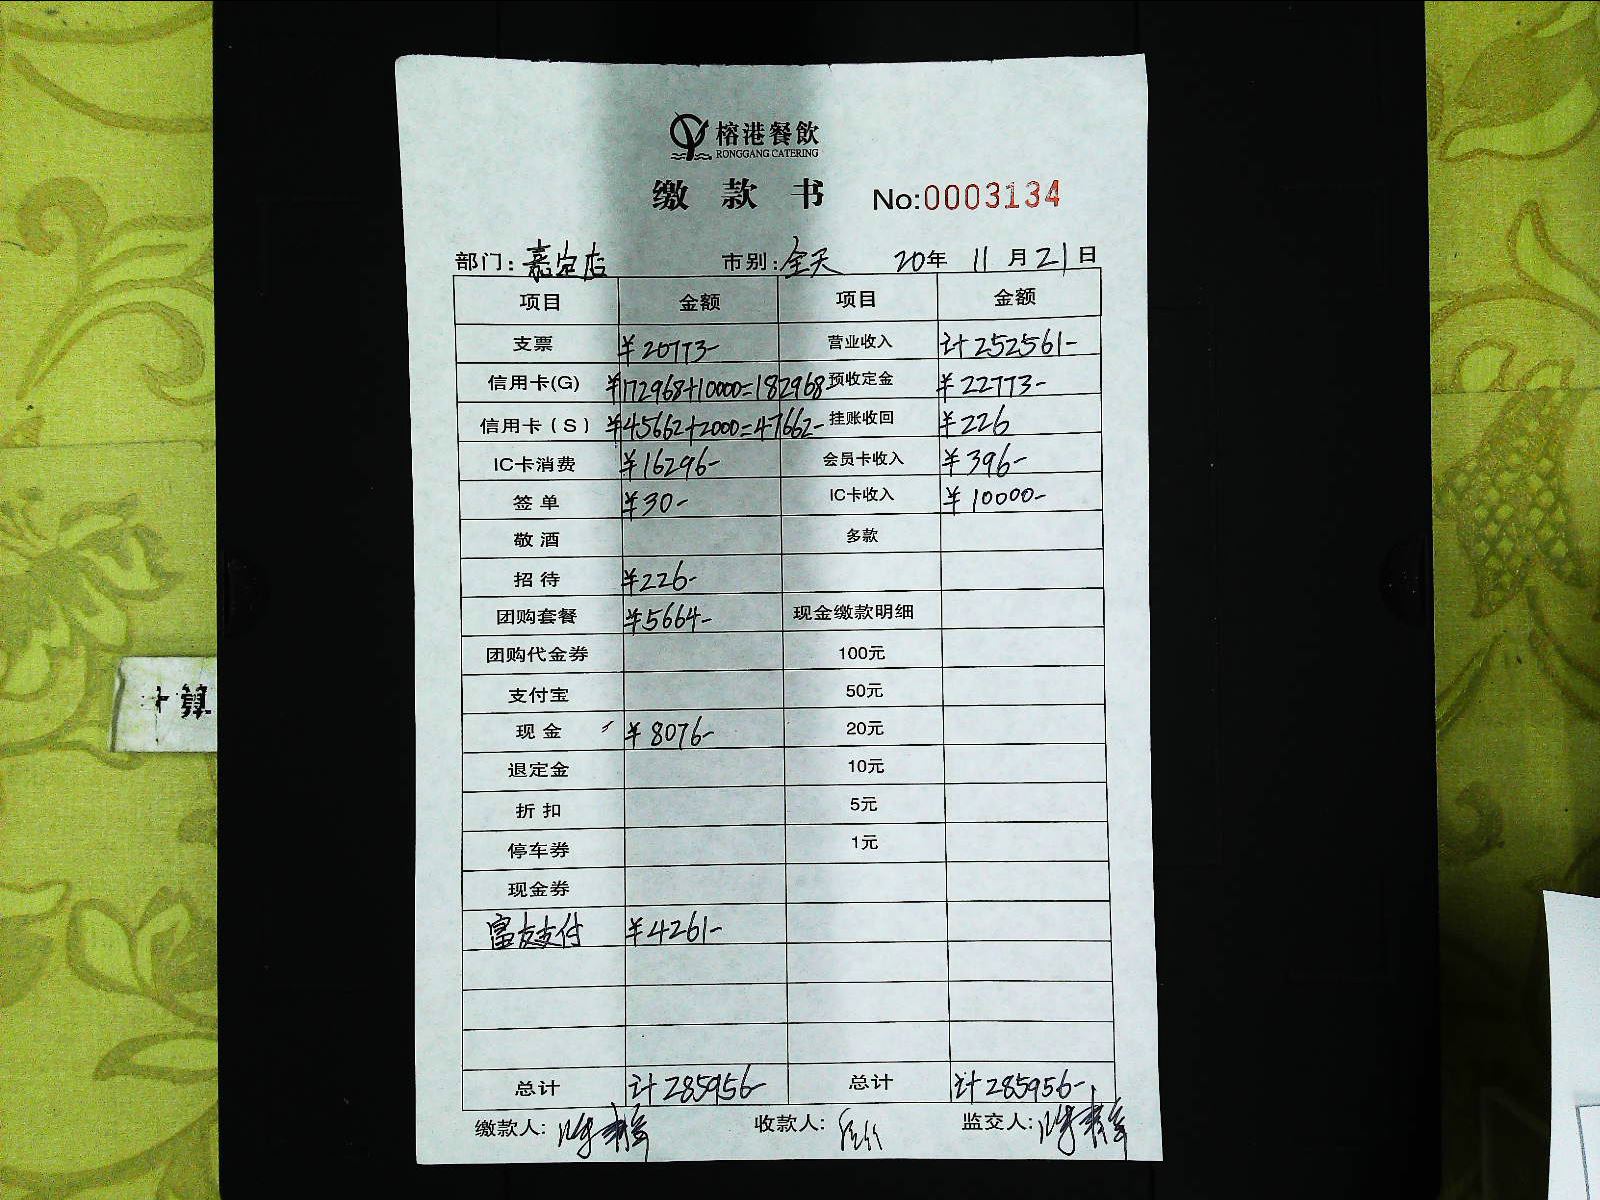 榕港餐飲
RONGGANG CATERING
缴款书 No:0003134
部门:嘉定店 市别:全天 20年 11月21日
项目 金额 项目 金额
支票 ¥20773- 营业收入 计252561-
信用卡(G) ¥172968+10000=182968 预收定金 ¥22773-
信用卡(S) ¥45662+2000=47662- 挂账收回 ¥226
IC卡消费 ¥16296- 会员卡收入 ¥396-
签单 ¥30- IC卡收入 ¥10000-
敬酒 多款
招待 ¥226-
团购套餐 ¥5664- 现金缴款明细
团购代金券 100元
支付宝 50元
现金 ¥8076- 20元
退定金 10元
折扣 5元
停车券 1元
现金券
富友支付 ¥4261-
总计 计285956- 总计 计285956-
缴款人: 收款人: 监交人: